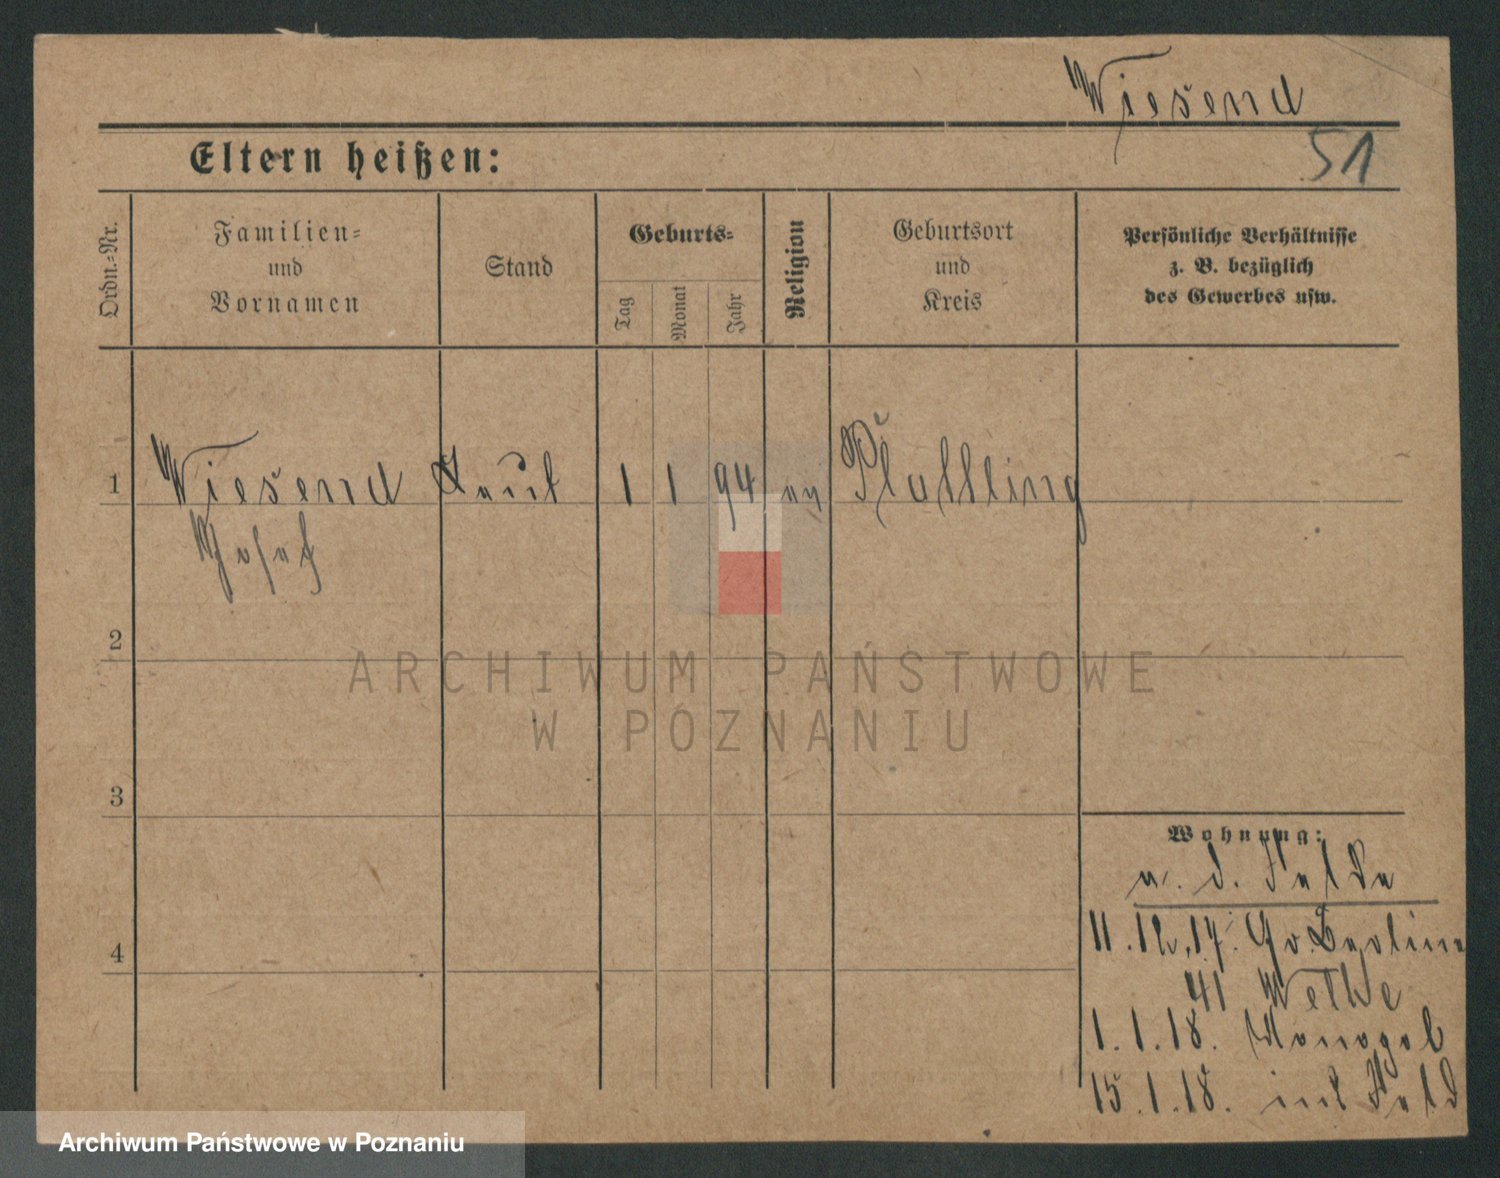 Wiesend
51
Eltern heißen:
Ordn.-Nr.
Familien-
und
Vornamen
Stand
Geburts-
Tag
Monat
Jahr
Religion
Geburtsort
und
Kreis
Persönliche Verhältnisse
z. B. bezüglich
des Gewerbes usw.
1 Wiesend 1 1 94
Josef
2
3
4
Wohnung:
11.12.17. Gr. Berliner
41
1.1.18.
15.1.18. ins Feld
ARCHIWUM PAŃSTWOWE
W POZNANIU
Archiwum Państwowe w Poznaniu